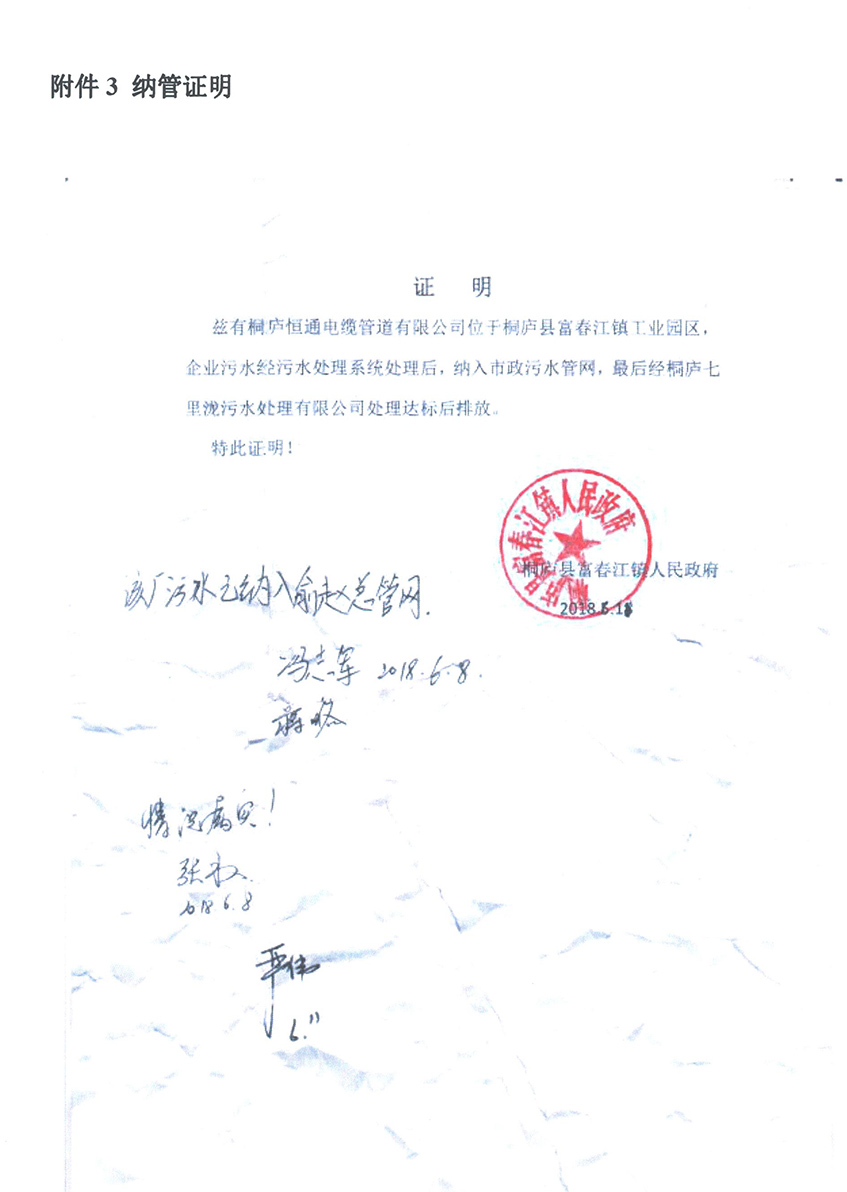 附件 3 纳管证明
证 明
兹有桐庐恒通电缆管道有限公司位于桐庐县富春江镇工业园区，
企业污水经污水处理系统处理后，纳入市政污水管网，最后经桐庐七
里泷污水处理有限公司处理达标后排放。
特此证明！
桐庐县富春江镇人民政府
桐庐县富春江镇人民政府
2018.
该厂污水已纳入俞赵总管网.
冯志军 2018.6.8.
蒋
情况属实！
张
2018.6.8
严伟
6.11